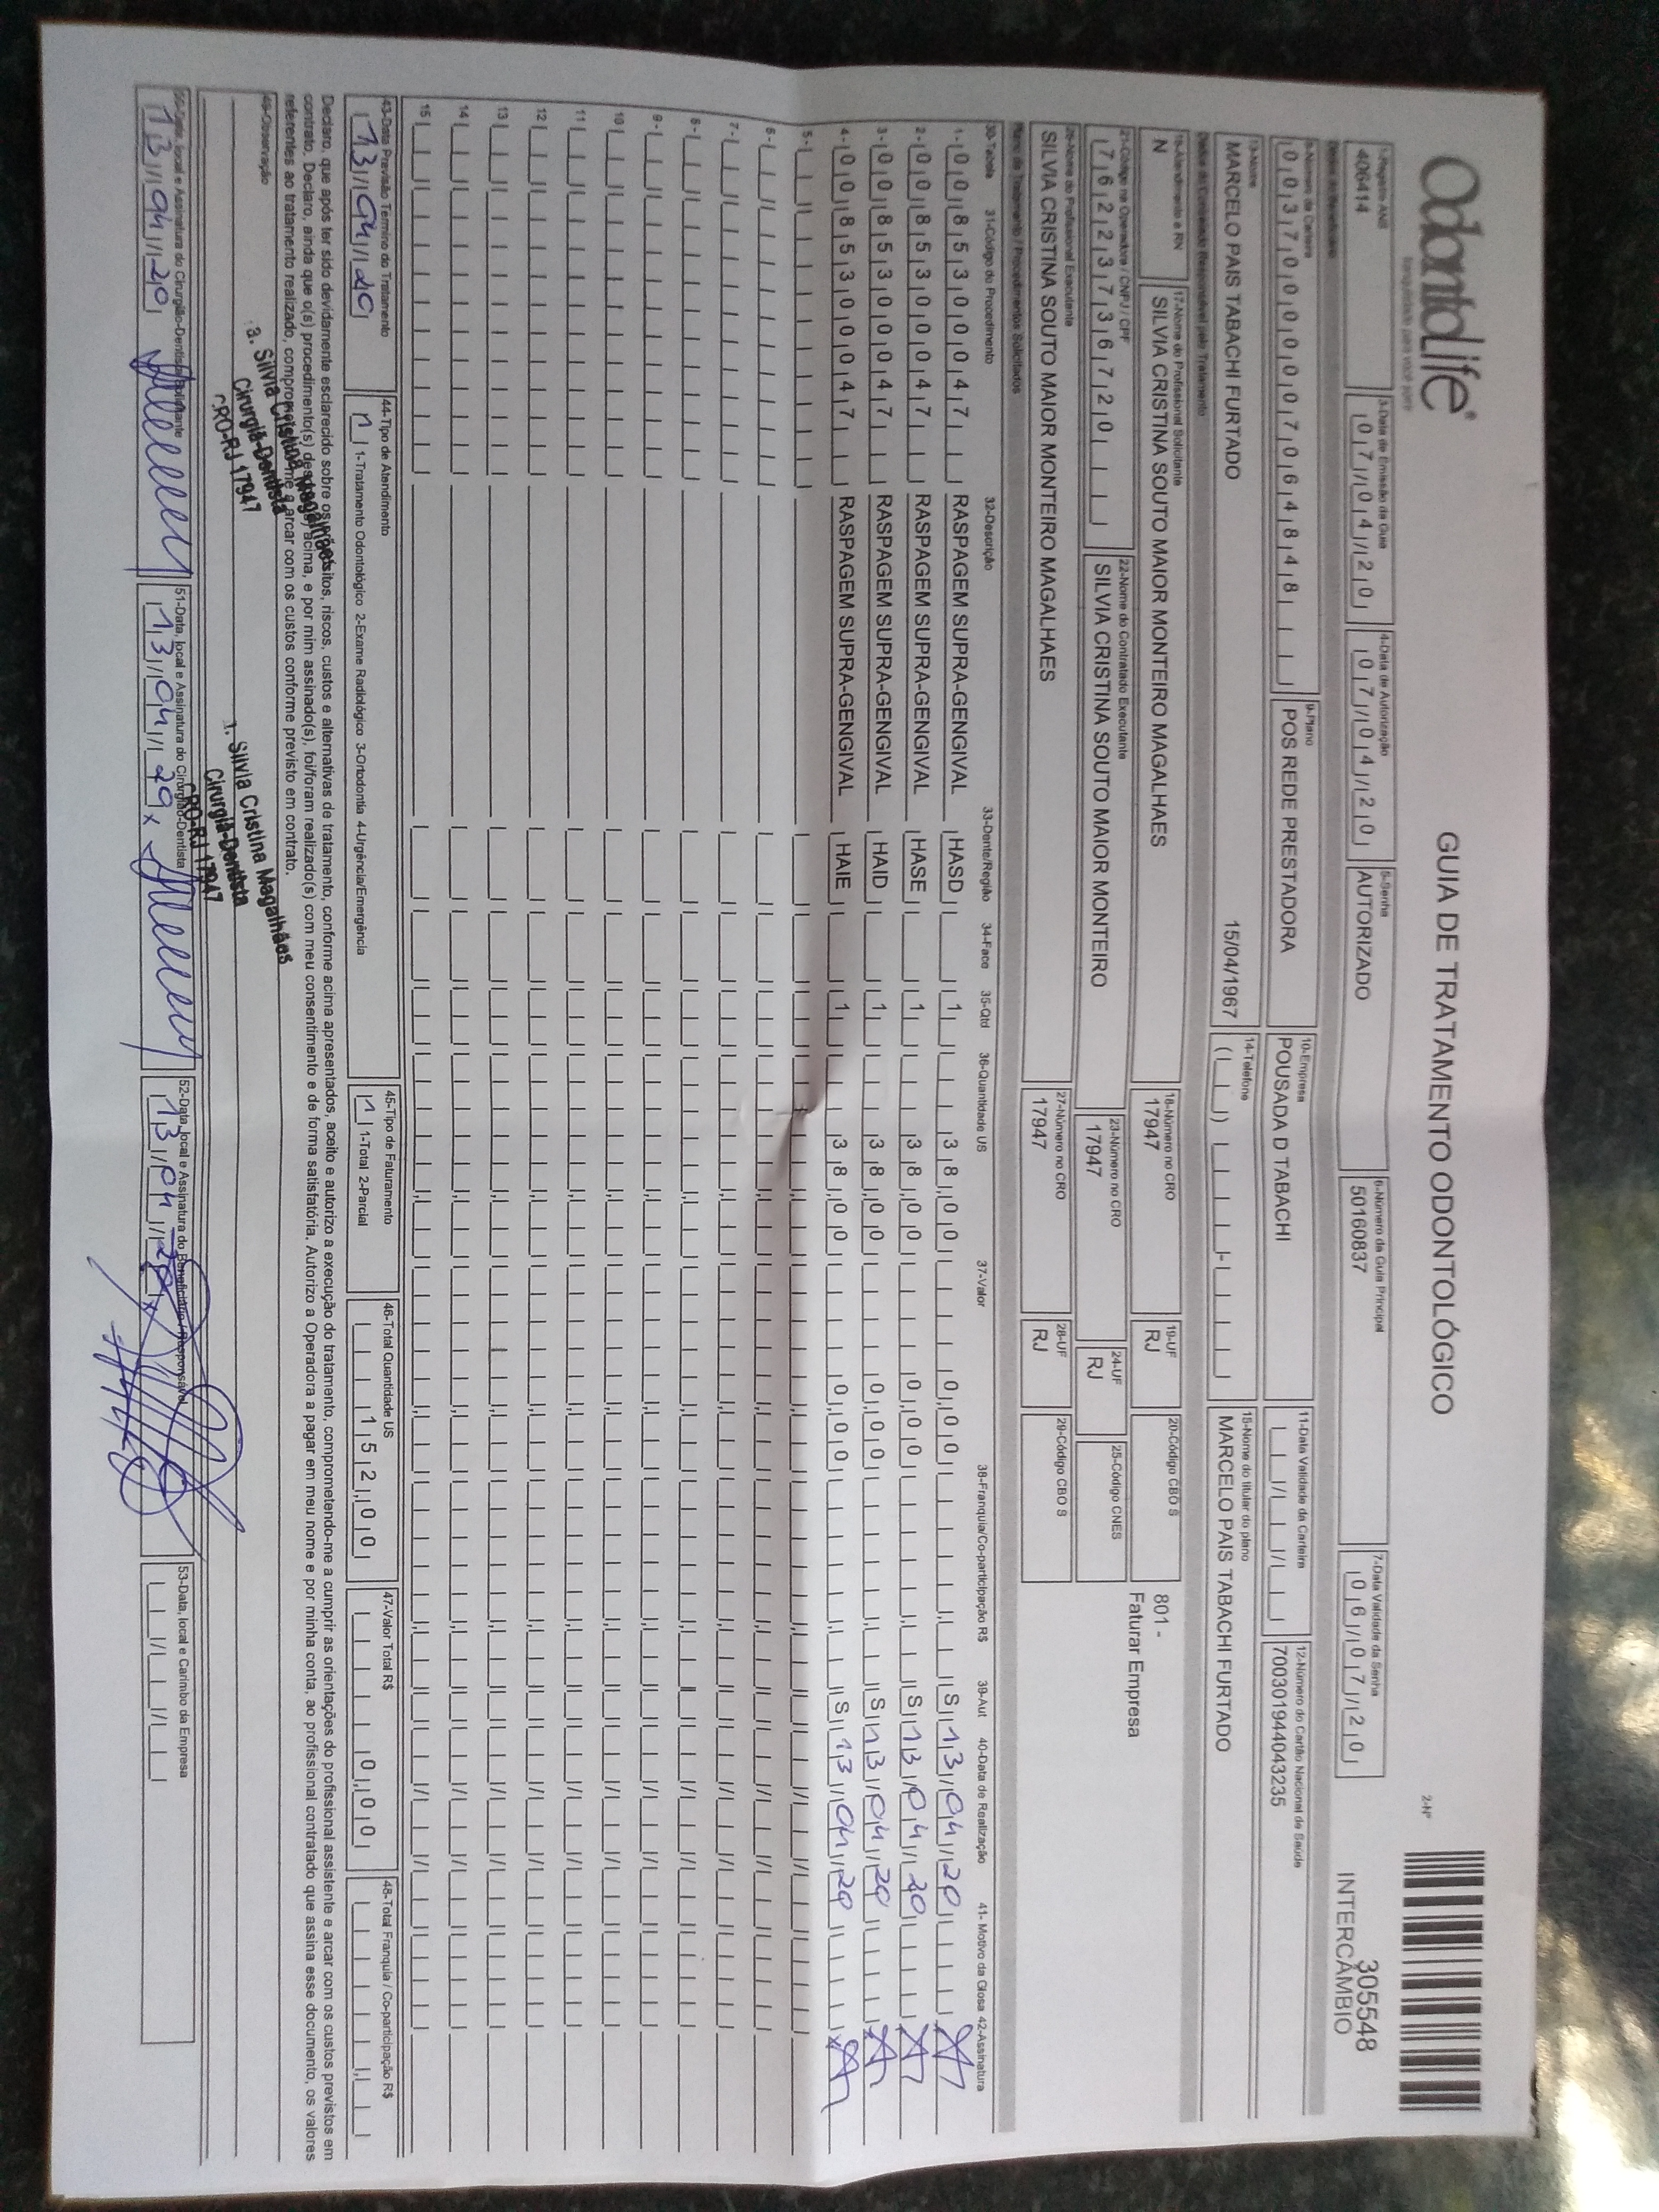 OdontoLife®
tranquilidade para você sorrir
GUIA DE TRATAMENTO ODONTOLÓGICO
2-Nº
305548
INTERCÂMBIO
1-Registro ANS
406414
3-Data de Emissão da Guia
07/04/20
4-Data de Autorização
07/04/20
5-Senha
AUTORIZADO
6-Número da Guia Principal
50160837
7-Data Validade da Senha
06/07/20
Dados do Beneficiário
8-Número da Carteira
00370000007064848
9-Plano
POS REDE PRESTADORA
10-Empresa
POUSADA D TABACHI
11-Data Validade da Carteira
12-Número do Cartão Nacional de Saúde
700301944043235
13-Nome
MARCELO PAIS TABACHI FURTADO 15/04/1967
14-Telefone
15-Nome do titular do plano
MARCELO PAIS TABACHI FURTADO
Dados do Contratado Responsável pelo Tratamento
16-Atendimento a RN
N
17-Nome do Profissional Solicitante
SILVIA CRISTINA SOUTO MAIOR MONTEIRO MAGALHAES
18-Número no CRO
17947
19-UF
RJ
20-Código CBO S
801 -
Faturar Empresa
21-Código na Operadora / CNPJ / CPF
76223736720
22-Nome do Contratado Executante
SILVIA CRISTINA SOUTO MAIOR MONTEIRO
23-Número no CRO
17947
24-UF
RJ
25-Código CNES
26-Nome do Profissional Executante
SILVIA CRISTINA SOUTO MAIOR MONTEIRO MAGALHAES
27-Número no CRO
17947
28-UF
RJ
29-Código CBO S
Plano de Tratamento / Procedimentos Solicitados
30-Tabela 31-Código do Procedimento 32-Descrição 33-Dente/Região 34-Face 35-Qtd 36-Quantidade US 37-Valor 38-Franquia/Co-participação R$ 39-Aut 40-Data de Realização 41- Motivo da Glosa 42-Assinatura
1- 00 85300047 RASPAGEM SUPRA-GENGIVAL HASD 1 38,00 0,00 S 13/04/20
2- 00 85300047 RASPAGEM SUPRA-GENGIVAL HASE 1 38,00 0,00 S 13/04/20
3- 00 85300047 RASPAGEM SUPRA-GENGIVAL HAID 1 38,00 0,00 S 13/04/20
4- 00 85300047 RASPAGEM SUPRA-GENGIVAL HAIE 1 38,00 0,00 S 13/04/20
5-
6-
7-
8-
9-
10
11
12
13
14
15
43-Data Previsão Término do Tratamento
13/04/20
44-Tipo de Atendimento
1 1-Tratamento Odontológico 2-Exame Radiológico 3-Ortodontia 4-Urgência/Emergência
45-Tipo de Faturamento
1 1-Total 2-Parcial
46-Total Quantidade US
152,00
47-Valor Total R$
0,00
48-Total Franquia / Co-participação R$
Declaro, que após ter sido devidamente esclarecido sobre os propósitos, riscos, custos e alternativas de tratamento, conforme acima apresentados, aceito e autorizo a execução do tratamento, comprometendo-me a cumprir as orientações do profissional assistente e arcar com os custos previstos em
contrato. Declaro, ainda que o(s) procedimento(s) descrito(s) acima, e por mim assinado(s), foi/foram realizado(s) com meu consentimento e de forma satisfatória. Autorizo a Operadora a pagar em meu nome e por minha conta, ao profissional contratado que assina esse documento, os valores
referentes ao tratamento realizado, comprometendo-me a arcar com os custos conforme previsto em contrato.
49-Observação
a. Silvia Cristina Magalhães
Cirurgiã-Dentista
CRO-RJ 17947
a. Silvia Cristina Magalhães
Cirurgiã-Dentista
CRO-RJ 17947
50-Data, local e Assinatura do Cirurgião-Dentista Solicitante
13/04/20
51-Data, local e Assinatura do Cirurgião-Dentista
13/04/20 x
52-Data, local e Assinatura do Beneficiário / Responsável
13/04/20 x
53-Data, local e Carimbo da Empresa